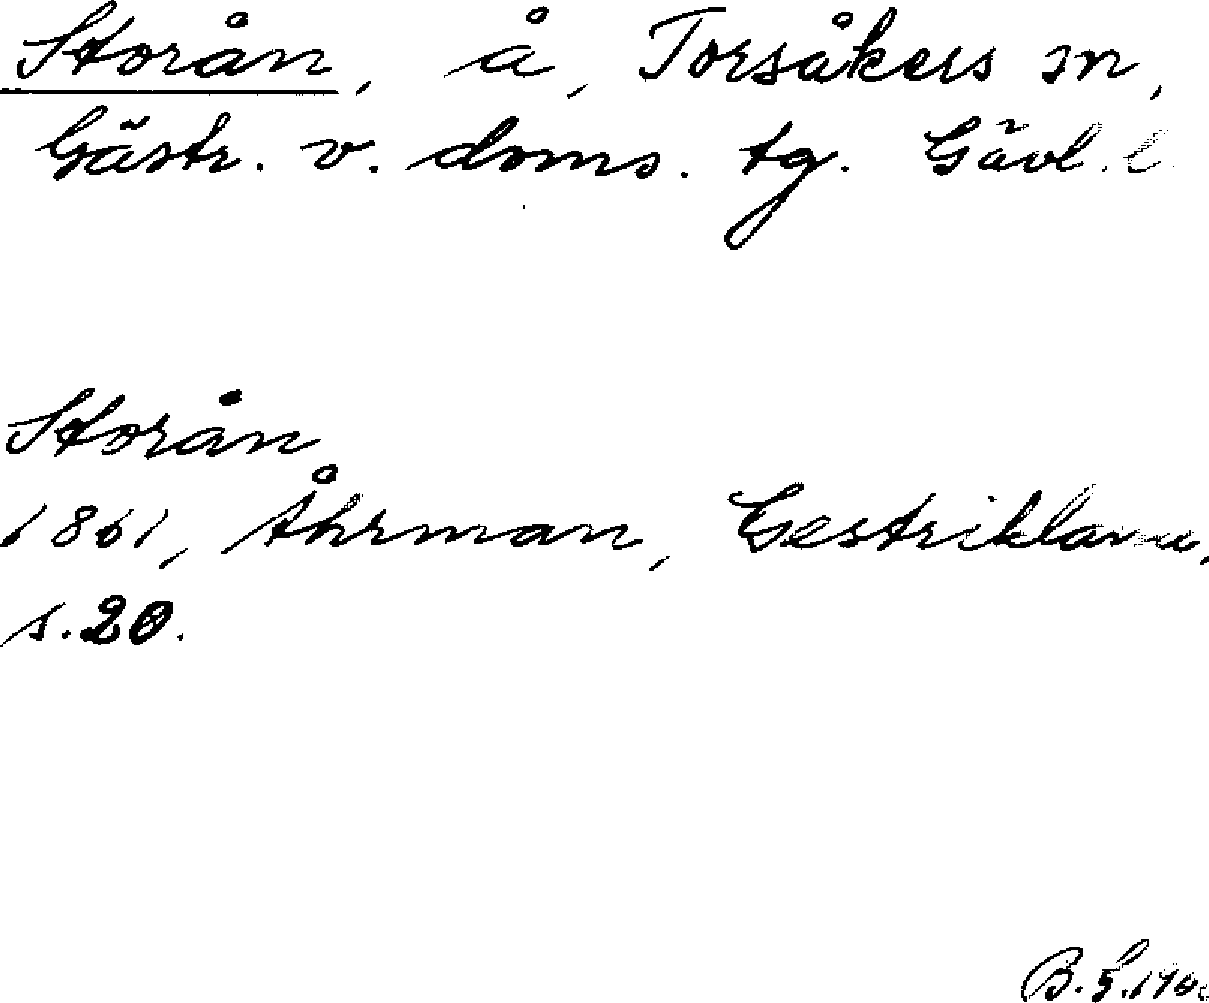 Storån, å, Torsåkers sn,
Gästr. v. doms. tg. Gävl. l.
Storån
1861, Åhrman, Gestrikland,
s. 20.
B.